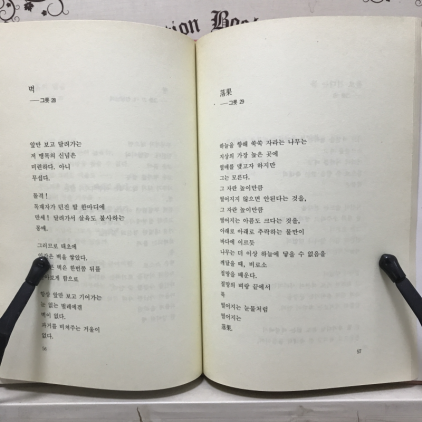 tion Book
벽
——그릇 28
앞만 보고 달려가는
저 맹목의 신념은
미련하다. 아니
무섭다.
돌격!
독재자가 던진 말 한마디에
만세! 달려가서 살육도 불사하는
몽매.
그러므로 태초에
벽을 쌓았다.
벽은 한번쯤 뒤를
하게 함으로
앞만 보고 기어가는
없는 벌레에겐
벽이 없다.
비쳐주는 거울이
없다.
56
落果
——그릇 29
하늘을 향해 쑥쑥 자라는 나무는
지상의 가장 높은 곳에
열매를 맺고자 하지만
그는 모른다.
그 자란 높이만큼
떨어지지 않으면 안된다는 것을,
그 자란 높이만큼
떨어지는 아픔도 크다는 것을,
아래로 아래로 추락하는 물만이
바다에 이르듯
나무는 더 이상 하늘에 닿을 수 없음을
깨달을 때, 비로소
절망을 배운다.
절망의 벼랑 끝에서
뚝
떨어지는 눈물처럼
떨어지는
落果.
57